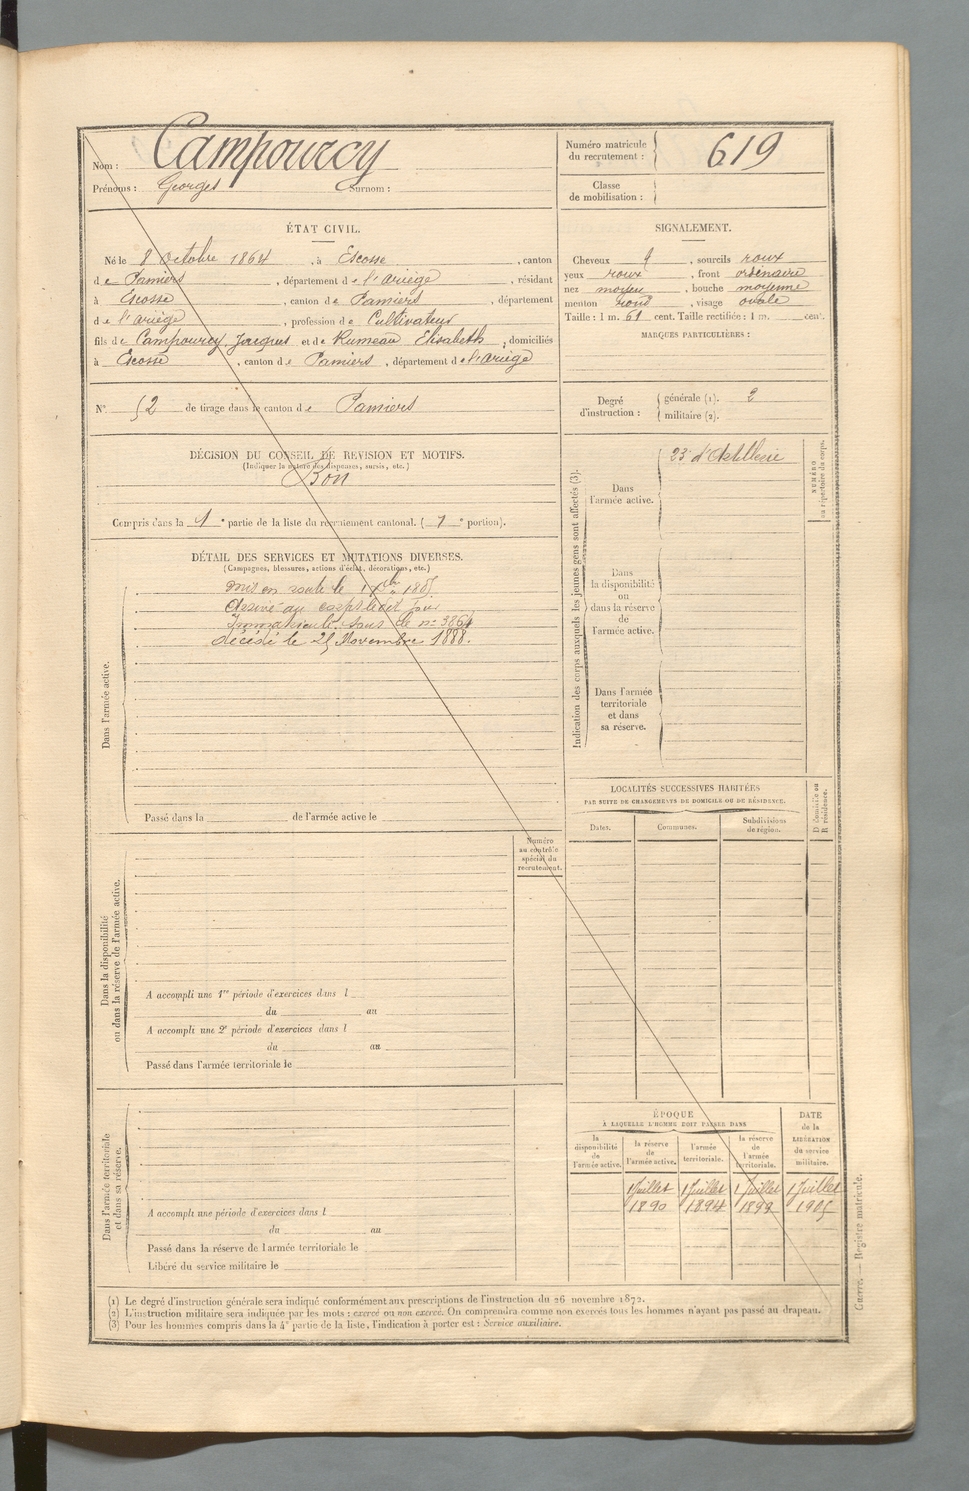 Nom : Campourcy
Prénoms : Georges Surnom :
Numéro matricule du recrutement : 619
Classe de mobilisation :
ÉTAT CIVIL.
Né le 8 Octobre 1864, à Escosse, canton
de Pamiers, département de l'Ariège, résidant
à Escosse, canton de Pamiers, département
de l'Ariège, profession de Cultivateur
fils de Campourcy Jacques et de Rumeau Elisabeth, domiciliés
à Escosse, canton de Pamiers, département de l'Ariège
SIGNALEMENT.
Cheveux, sourcils roux
yeux roux, front ordinaire
nez moyen, bouche moyenne
menton rond, visage ovale
Taille : 1 m. 61 cent. Taille rectifiée : 1 m. cent.
MARQUES PARTICULIÈRES :
N° 52 de tirage dans le canton de Pamiers
Degré d'instruction : générale (1). 2
militaire (2).
DÉCISION DU CONSEIL DE REVISION ET MOTIFS.
(Indiquer la nature des dispenses, sursis, etc.)
Bon
Compris dans la 1e partie de la liste du recrutement cantonal. (1e portion).
DÉTAIL DES SERVICES ET MUTATIONS DIVERSES.
(Campagnes, blessures, actions d'éclat, décorations, etc.)
Dans l'armée active.
Mis en route le 1885
Arrivé au corps ledit jour
Immatriculé sous le n° 3864
décédé le 25 Novembre 1888.
Passé dans la de l'armée active le
Indication des corps auxquels les jeunes gens sont affectés (3).
Dans l'armée active.
23e d'Artillerie
NUMÉRO au répertoire du corps.
Dans la disponibilité ou dans la réserve de l'armée active.
Dans l'armée territoriale et dans sa réserve.
LOCALITÉS SUCCESSIVES HABITÉES
PAR SUITE DE CHANGEMENTS DE DOMICILE OU DE RÉSIDENCE.
Dates. Communes. Subdivisions de région.
D domicile ou R résidence.
Numéro au contrôle spécial du recrutement.
Dans la disponibilité ou dans la réserve de l'armée active.
A accompli une 1re période d'exercices dans l
du au
A accompli une 2e période d'exercices dans l
du au
Passé dans l'armée territoriale le
Dans l'armée territoriale et dans sa réserve.
A accompli une période d'exercices dans l
du au
Passé dans la réserve de l'armée territoriale le
Libéré du service militaire le
ÉPOQUE
À LAQUELLE L'HOMME DOIT PASSER DANS
la disponibilité de l'armée active.
la réserve de l'armée active.
l'armée territoriale.
la réserve de l'armée territoriale.
DATE de la LIBÉRATION du service militaire.
1 Juillet 1 Juillet 1 Juillet 1 Juillet
1890 1894 1899 1905
(1) Le degré d'instruction générale sera indiqué conformément aux prescriptions de l'instruction du 26 novembre 1872.
(2) L'instruction militaire sera indiquée par les mots : exercé ou non exercé. On comprendra comme non exercés tous les hommes n'ayant pas passé au drapeau.
(3) Pour les hommes compris dans la 4e partie de la liste, l'indication à porter est : Service auxiliaire.
Guerre. — Registre matricule.